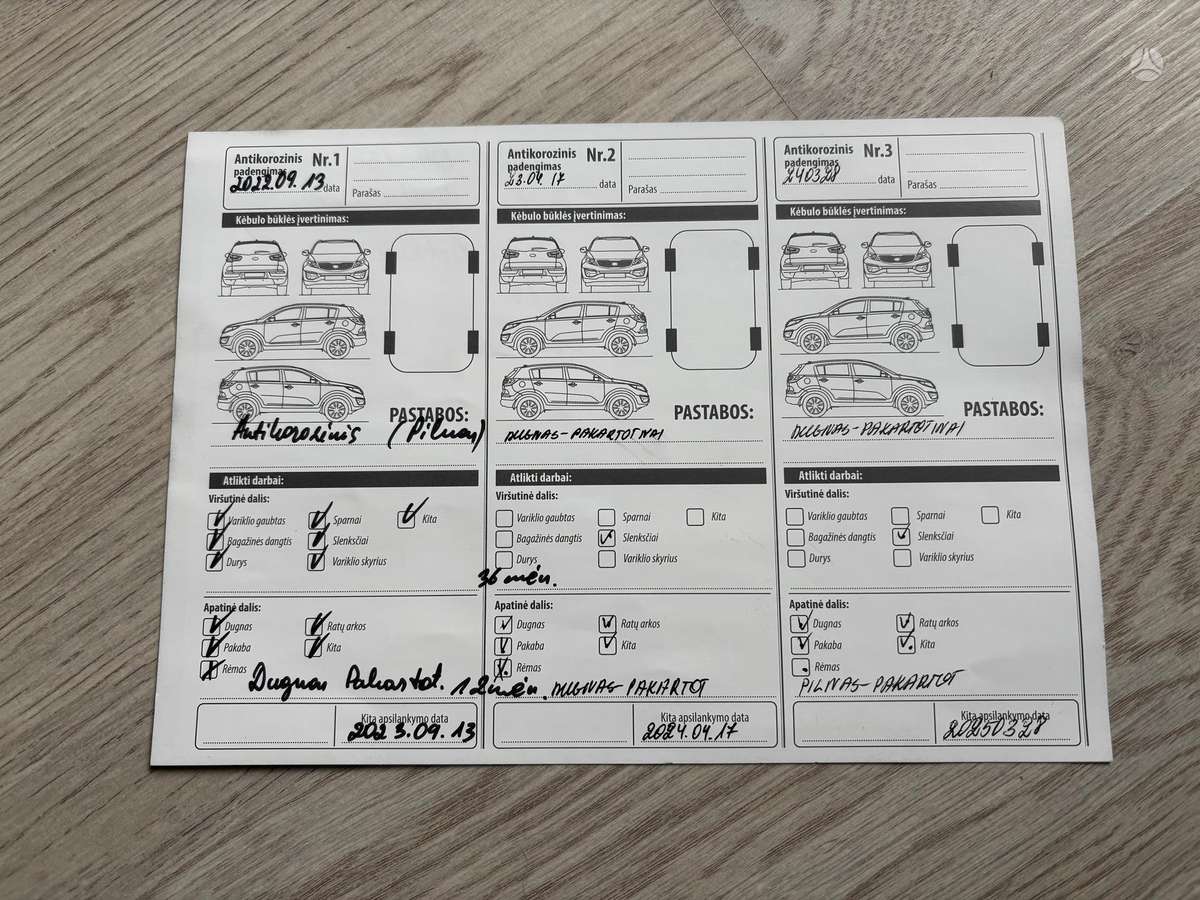 Antikorozinis Nr.1
padengimas
2022.09.13 data
Parašas
Kėbulo būklės įvertinimas:
PASTABOS:
Antikorozinis (Pilnas)
Atlikti darbai:
Viršutinė dalis:
Variklio gaubtas Sparnai Kita
Bagažinės dangtis Slenksčiai
Durys Variklio skyrius
36 mėn.
Apatinė dalis:
Dugnas Ratų arkos
Pakaba Kita
Rėmas
Dugnas Pakartot. 12 mėn.
Kita apsilankymo data
2023.09.13
Antikorozinis Nr.2
padengimas
23.04.17 data
Parašas
Kėbulo būklės įvertinimas:
PASTABOS:
DUGNAS-PAKARTOTINAI
Atlikti darbai:
Viršutinė dalis:
Variklio gaubtas Sparnai Kita
Bagažinės dangtis Slenksčiai
Durys Variklio skyrius
Apatinė dalis:
Dugnas Ratų arkos
Pakaba Kita
Rėmas
DUGNAS-PAKARTOT
Kita apsilankymo data
2024.04.17
Antikorozinis Nr.3
padengimas
240328 data
Parašas
Kėbulo būklės įvertinimas:
PASTABOS:
DUGNAS-PAKARTOTINAI
Atlikti darbai:
Viršutinė dalis:
Variklio gaubtas Sparnai Kita
Bagažinės dangtis Slenksčiai
Durys Variklio skyrius
Apatinė dalis:
Dugnas Ratų arkos
Pakaba Kita
Rėmas
PILNAS-PAKARTOT
Kita apsilankymo data
20250328